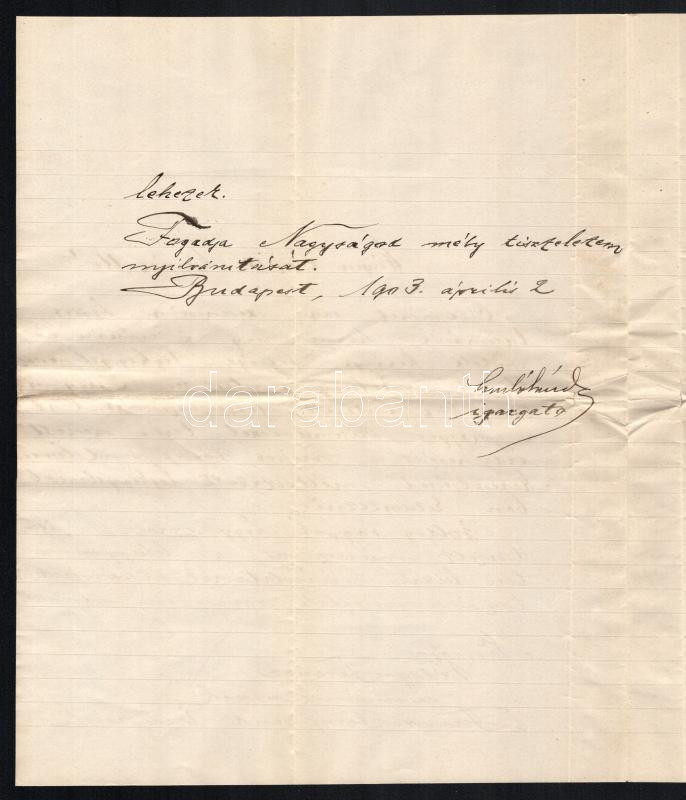 lehezek.
Fogadja Nagyságod mély tisztelelem
nyilvánitását.
Budapest, 1903. április 2
igazgató
darabanth